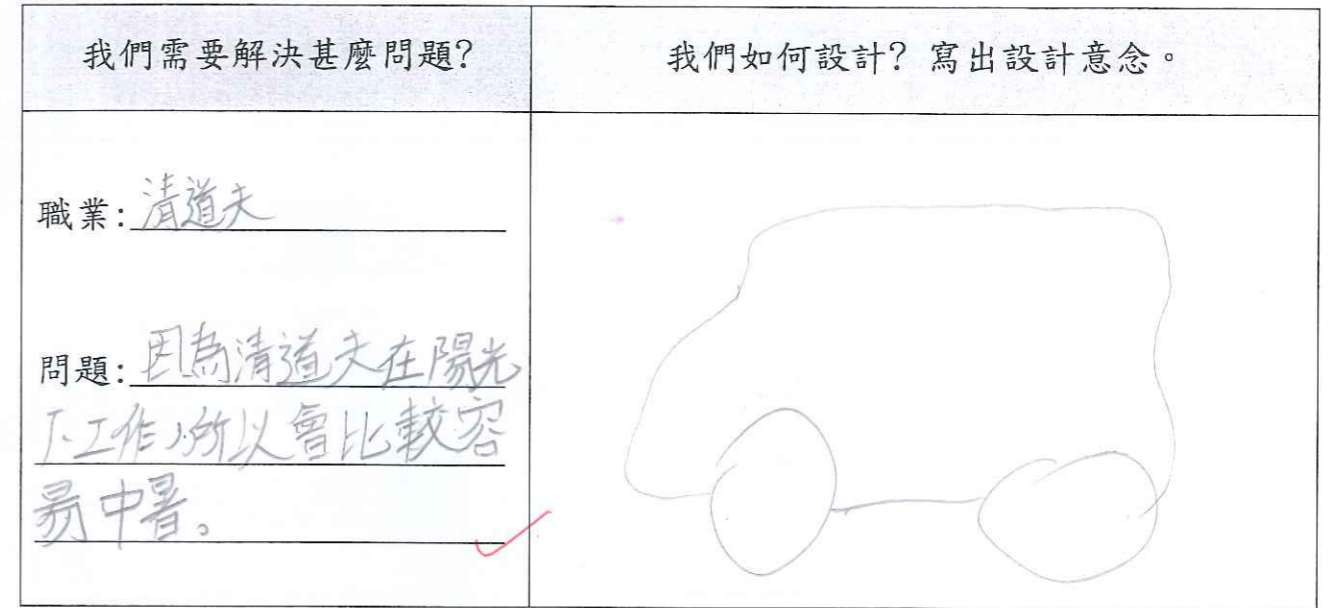 我們需要解決甚麼問題?
我們如何設計? 寫出設計意念。
職業:清道夫
問題:因為清道夫在陽光
下工作,所以會比較容
易中暑。